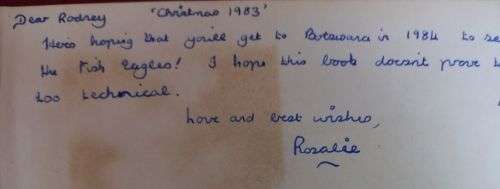 Dear Rodney 'Christmas 1983'
Here's hoping that you'll get to Botswana in 1984 to se
the Fish Eagles! I hope this book doesn't prove t
too technical.
Love and best wishes,
Rosalie